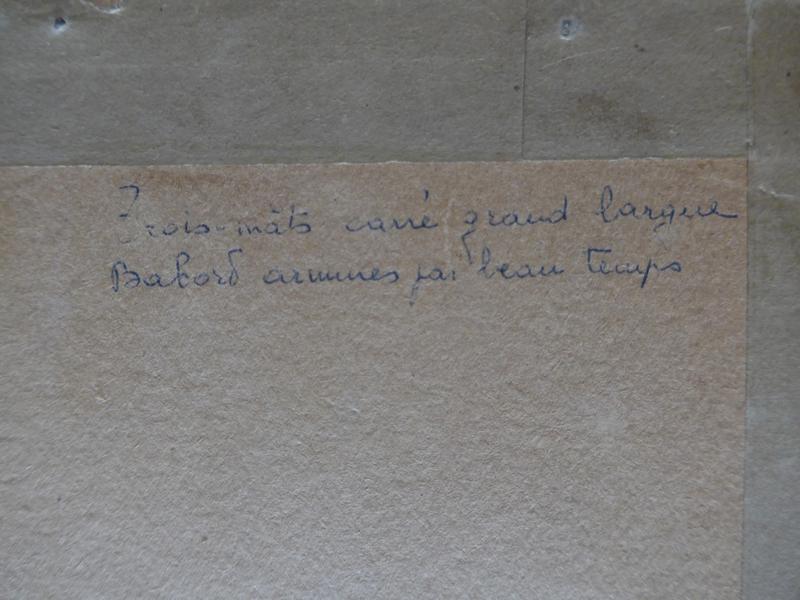 Trois-mâts carré grand largue
Babord armures par beau temps